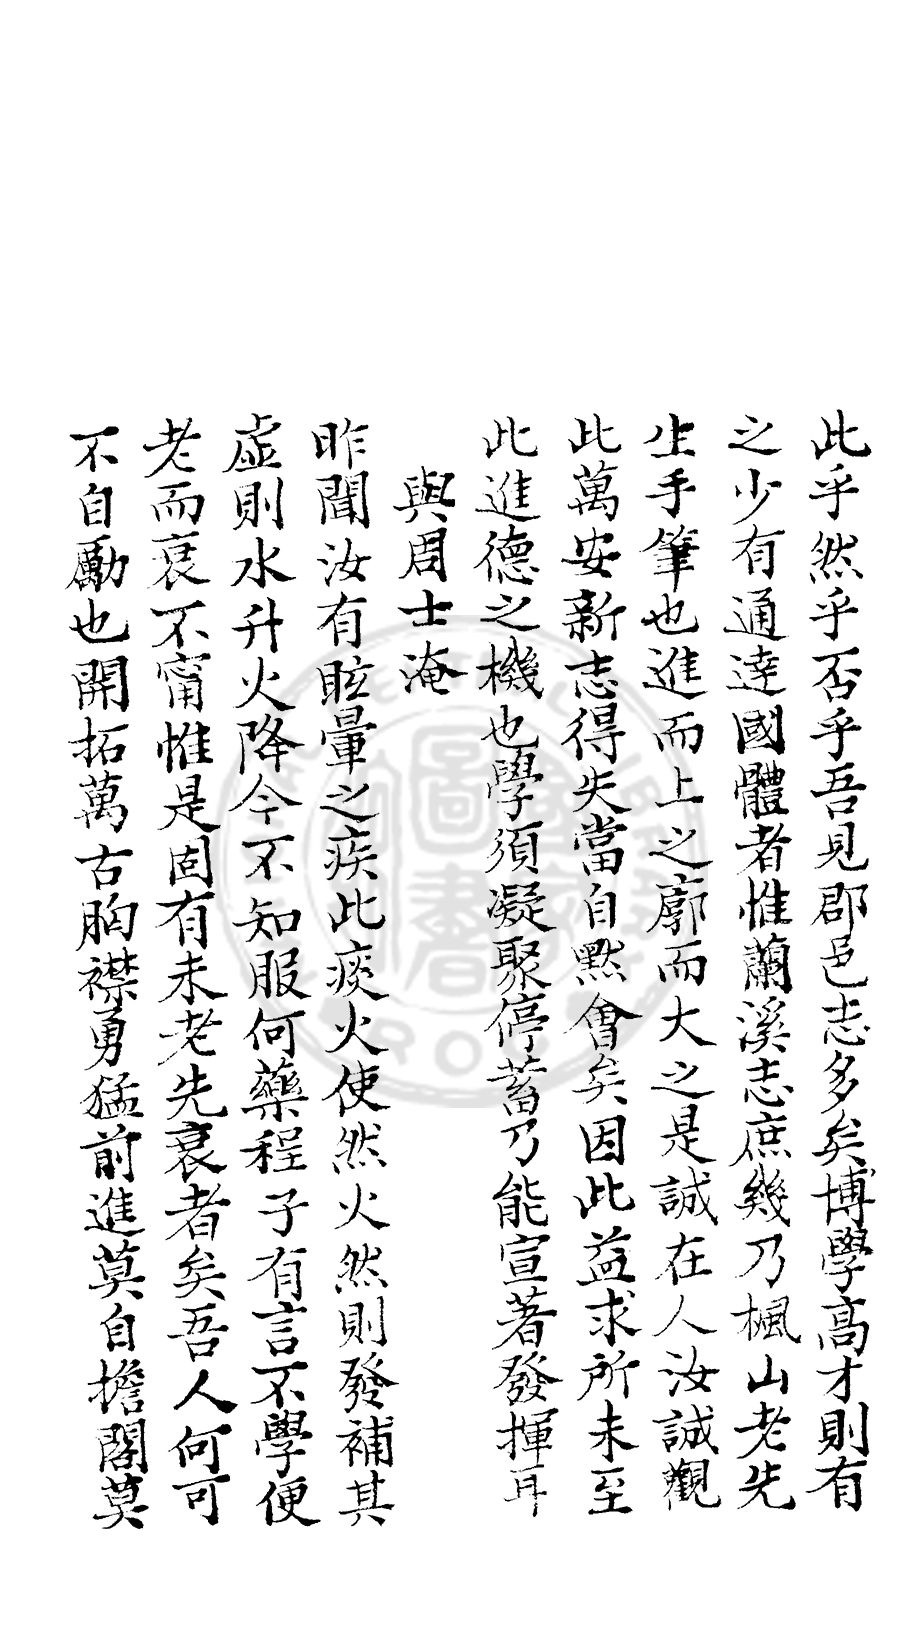 此乎然乎否乎吾見郡邑志多矣博學高才則有
之少有通達國體者惟蘭溪志庶幾乃楓山老先
生手筆也進而上之廓而大之是誠在人汝誠觀
此萬安新志得失當自默會矣因此益求所未至
此進德之機也學須凝聚停蓄乃能宣著發揮耳
與周士淹
昨聞汝有眩暈之疾此痰火使然火然則發補其
虛則水升火降今不知服何藥程子有言不學便
老而衰不甯惟是固有未老先衰者矣吾人何可
不自勵也開拓萬古胸襟勇猛前進莫自擔閣莫